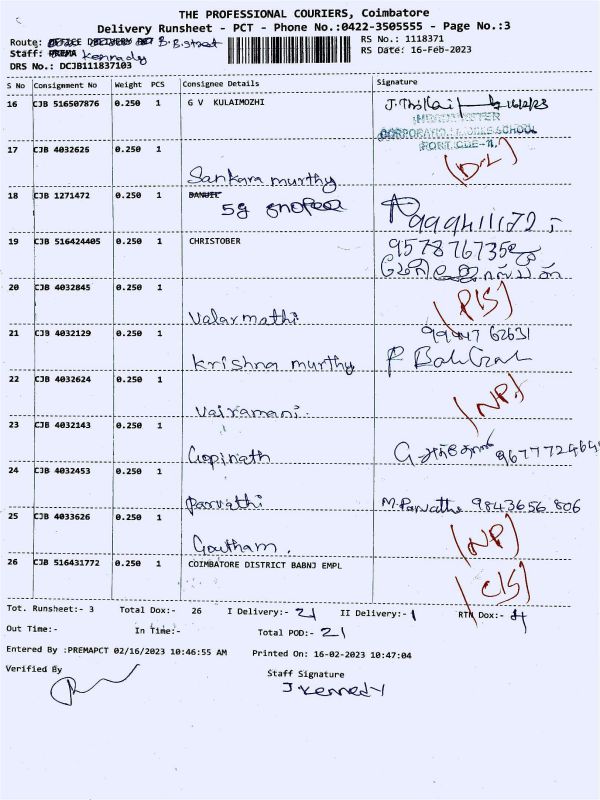 THE PROFESSIONAL COURIERS, Coimbatore
Delivery Runsheet - PCT - Phone No.:0422-3505555 - Page No.:3
Route: OFFICE DELIVERY B.B.street
RS No.: 1118371
Staff: PREMA Kennady
RS Date: 16-Feb-2023
DRS No.: DCJB111837103
S No Consignment No Weight PCS Consignee Details Signature
16 CJB 516507876 0.250 1 G V KULAIMOZHI 16/2/23
17 CJB 4032626 0.250 1 Sankara murthy (D-L)
18 CJB 1271472 0.250 1 DANUEL 59
19 CJB 516424405 0.250 1 CHRISTOBER
20 CJB 4032845 0.250 1 Valarmathi (P/S)
21 CJB 4032129 0.250 1 Krishna murthy 99447 62631
22 CJB 4032624 0.250 1 Vairamani. (NP)
23 CJB 4032143 0.250 1 Gopinath
24 CJB 4032453 0.250 1 Parvathi M.Parvathi 9843656 806
25 CJB 4033626 0.250 1 Goutham. (NP)
26 CJB 516431772 0.250 1 COIMBATORE DISTRICT BABNJ EMPL (C/S)
Tot. Runsheet:- 3 Total Dox:- 26 I Delivery:- 21 II Delivery:- 1 RTN Dox:- 4
Out Time:- In Time:- Total POD:- 21
Entered By :PREMAPCT 02/16/2023 10:46:55 AM Printed On: 16-02-2023 10:47:04
Verified By
Staff Signature
J Kennedy